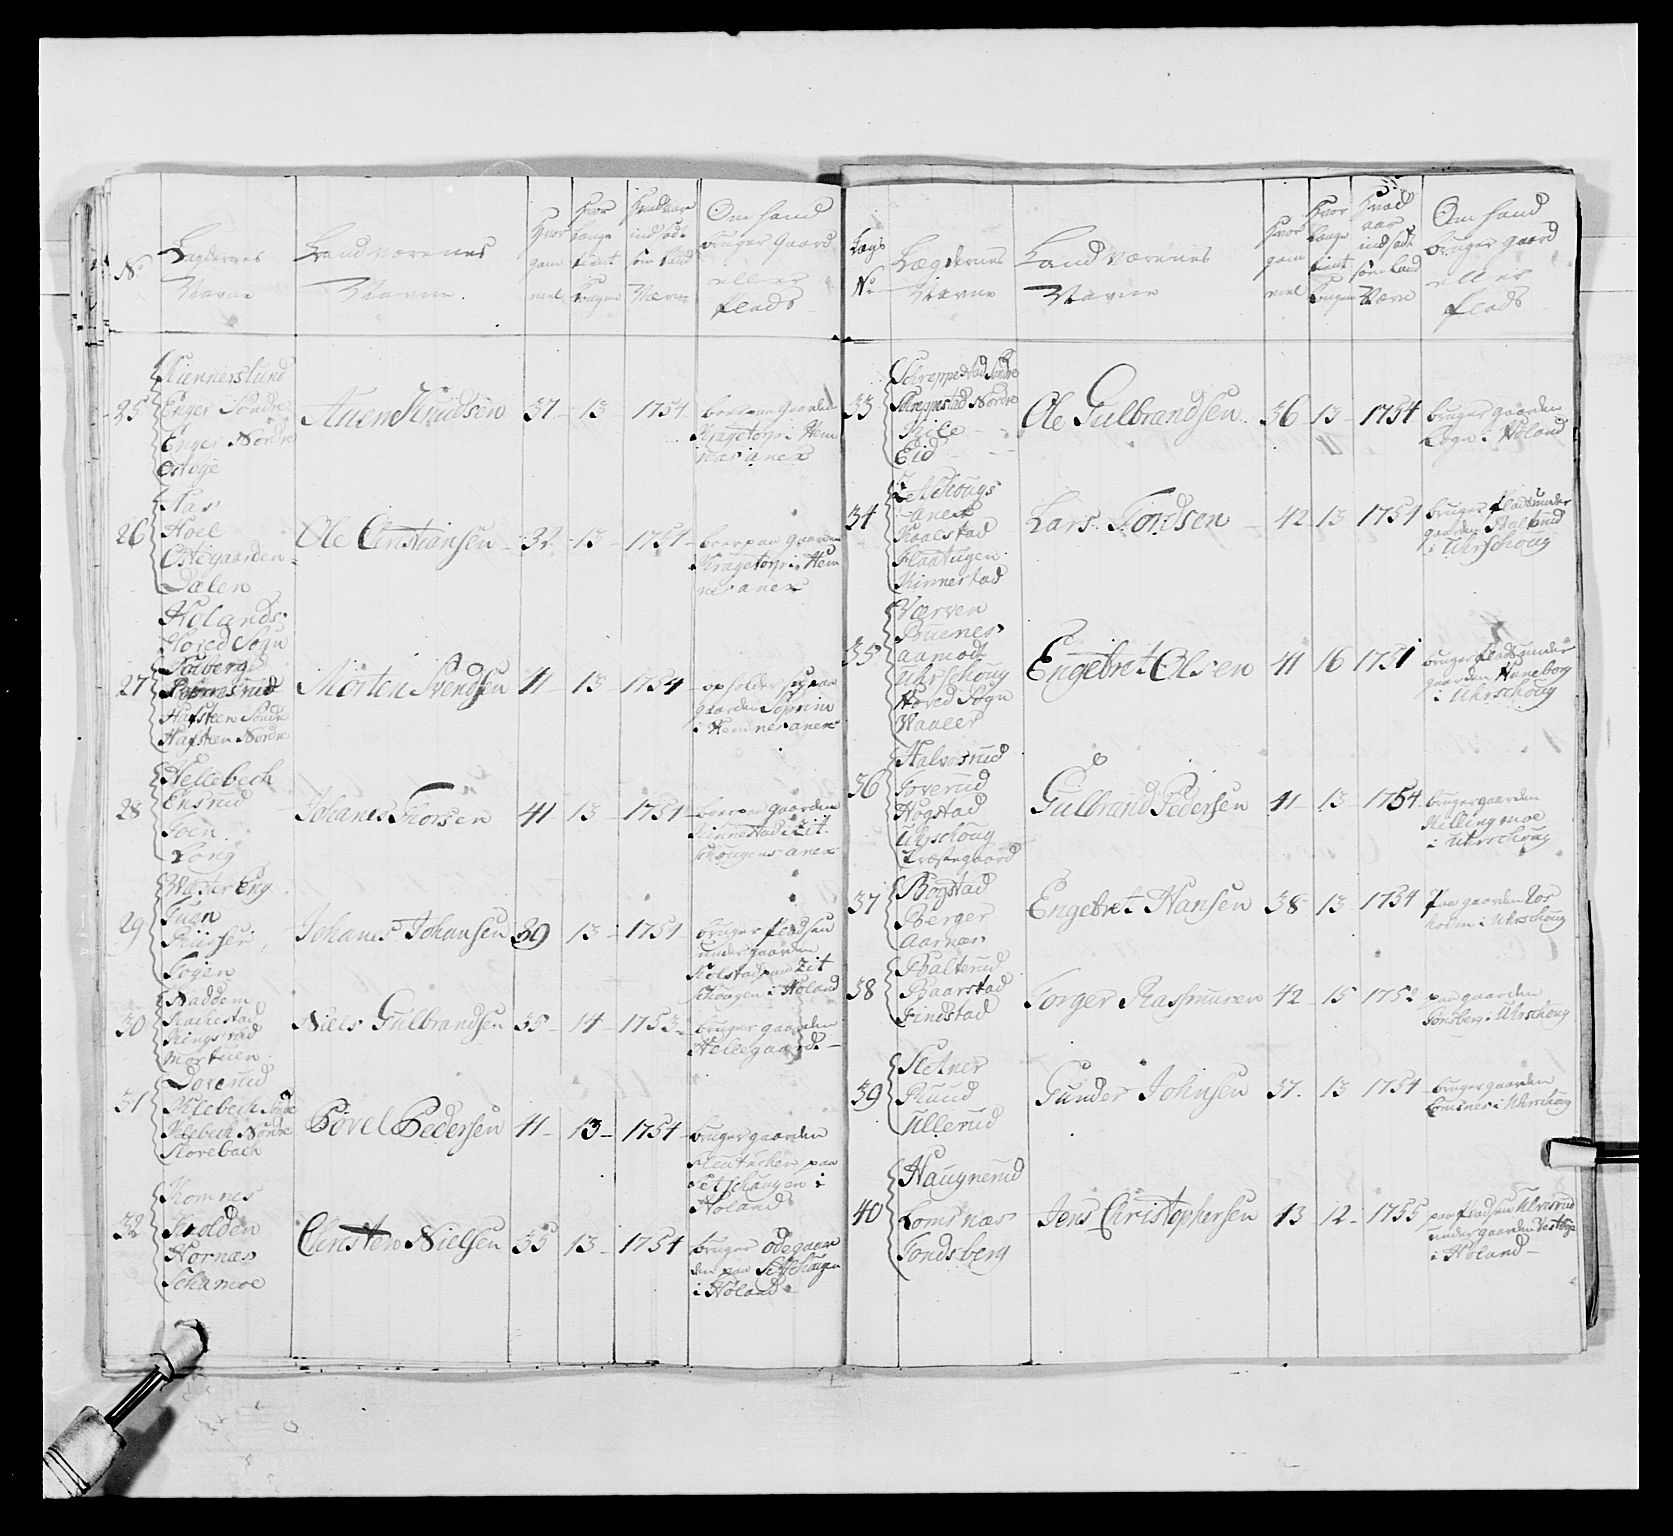 No
Lægdernes
Navne
Landværenes
Navne.
Hvor
gam
mel
Hvor
længe
tient
Kongen
Hvad aar
indsadt
som Land
Værn
Om hand
bruger gaard
eller
plads
25
Kiennerslund
Enger Søndre
Enger Nordre
Ostbye
Auen Knudsen
37
13
1754
boer paa gaarden
Kragetorp i Hem
næs anex
26
Aas
Hoel
Ostegaarden
Dalen
Ole Christiansen
32
13
1754
boer paa gaarden
Kragetorp i Hem
nes anex
27
Holands
Hoved Sogn
Solberg
Hafsteen Søndre
Hafsteen Nordre
Morten Svendsen
41
13
1754
opholder sig paa
gaarden Soprim
i Hemnes anex
28
Hellebech
Eksrud
Foen
Long
Johanes Thorsen
41
13
1754
boer paa gaarden
Kinnestad i Zit
schougens anex
29
Wester Eng
Tuan
Riiser
Fogen
Johanes Johansen
39
13
1754
bruger pladsen
under gaarden
Kolstad paa Zit
schougen i Høland
30
Naddem
Rachestad
Ringstad
Mortuen
Niels Gulbrandsen
35
14
1753
bruger gaarden
Hellegaard
31
Dorerud
Klebech Søndre
Klebech Nordre
Korebach
Povel Pedersen
41
13
1754
bruger gaarden
paa
Setschougen i
Holand
32
Komnes
Trolden
Hornæs
Schamoe
Christen Nielsen
35
13
1754
bruger Odegaar
den paa Settschougen
i Høland
Lægs
No
Lægdernes
Navne
Landværenes
Navne
Hvor
gam
mel
Hvor
længe
tient
Kongen
Hvad
aar
indsadt
som Land
Værn
Om hand
bruger gaard
eller
plads
33
Schreppestad Søndre
Schreppestad Nordre
Kile
Eid
Ole Gulbrandsen
36
13
1754
bruger gaarden
Logn i Høland
34
Setschougs
anex
Kaalstad
Flaatugen
Kinnestad
Lars Tordsen
42
13
1754
bruger plads under
gaarden
i Uhrschoug
35
Værven
Buenes
Aamodt
Uhrschoug
Hoved Sogn
Waaler
Engebret Olsen
41
16
1751
bruger plads under
gaarden Huneborg
i Uhrschoug
36
Halvorsrud
Toverud
Hogstad
Uhrschoug
Præstegaard
Gulbrand Pedersen
41
13
1754
bruger gaarden
Killingmoe
i Uhrschoug
37
Bogstad
Berger
Aarnæs
Engebret Hansen
38
13
1754
Paa gaarden Tor
holm i Uhrschoug
38
Balterud
Baarstad
Findstad
Torger Rasmusen
42
15
1752
paa gaarden
Tonsberg i Uhrschoug
39
Sletner
Ruud
Ullerud
Gunder Johnsen
37
13
1754
bruger gaarden
Lomsnes i Uhrschoug
40
Haugnerud
Lomsnæs
Tondsberg
Jens Christophersen
43
12
1755
paa pladsen Ulvesrud
under gaarden Vestbye
i Høland